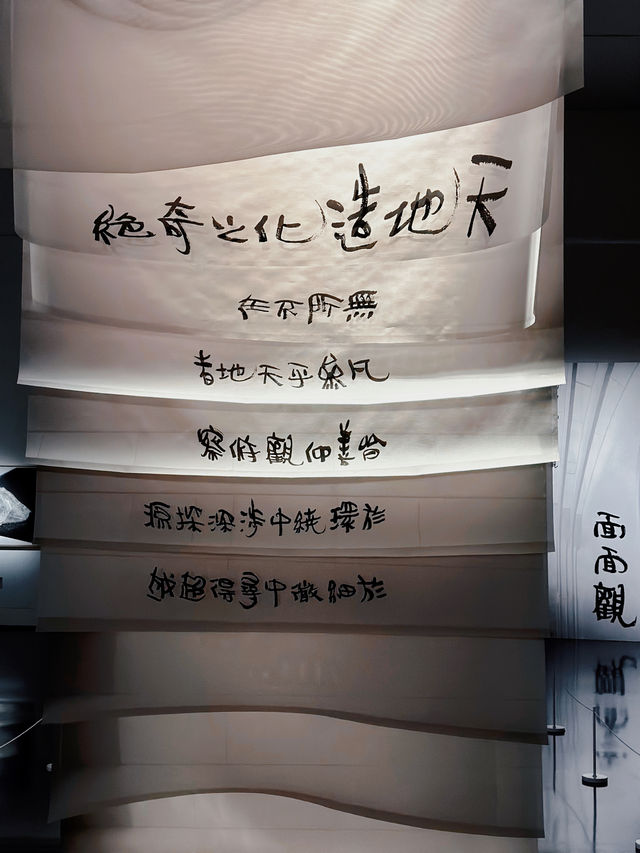 天地造化之奇絕
無所不在
凡象乎天地者
皆善仰觀俯察
於環繞中涉深探源
於細微中尋得超越
面面觀